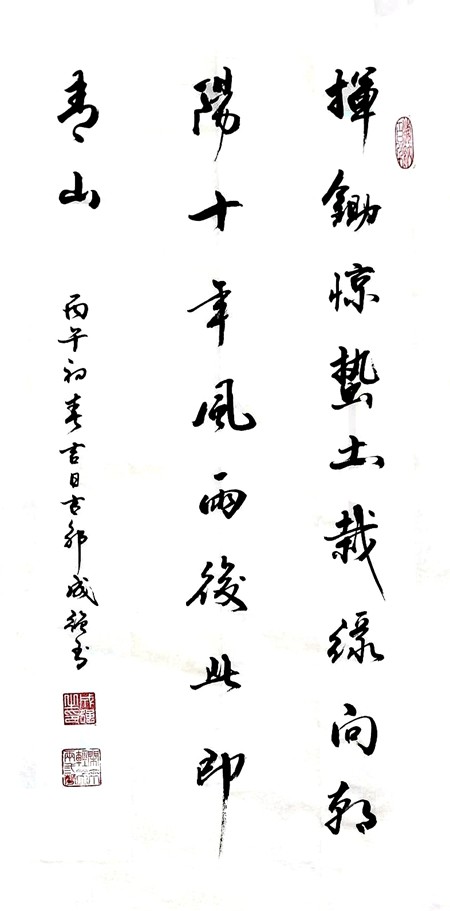 揮鋤惊蟄土栽绿向朝
陽十年風雨後此即
青山
丙午初春吉日古邹成